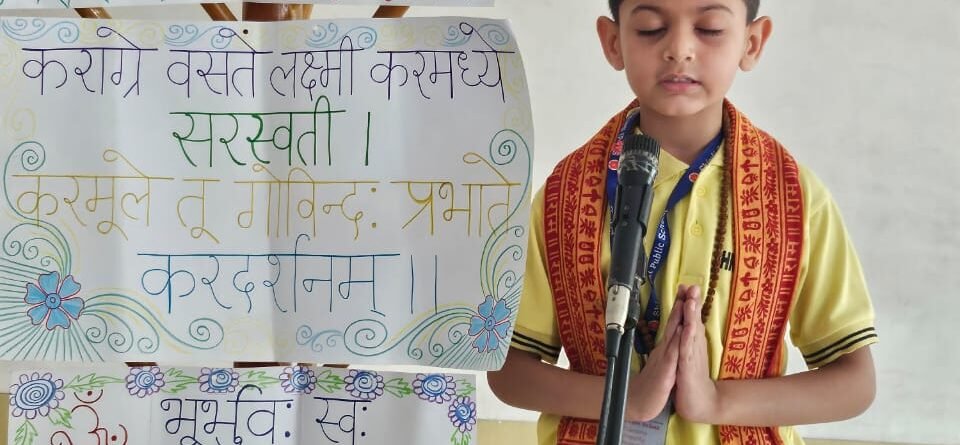 कराग्रे वसतें लक्ष्मी करमध्ये
सरस्वती ।
करमूले तू गोविन्दः प्रभाते
करदर्शनम् ।।
ॐ भूर्भुवः स्वः
Public School